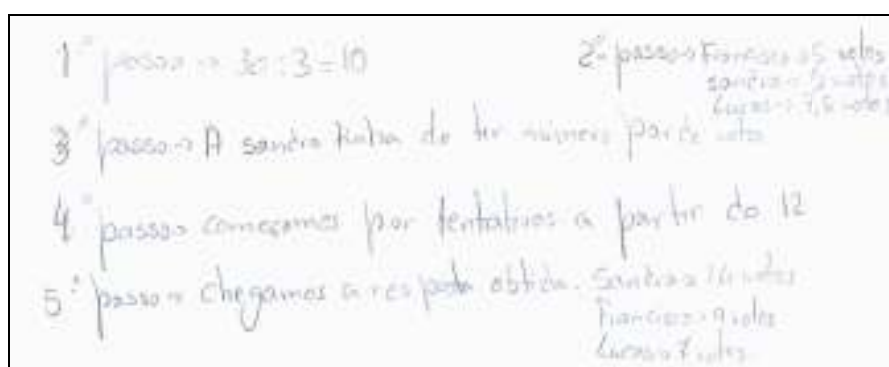 1º passo → 30 : 3 = 10
2º passo → Francisco → 5 votos
Sandra → votos
Lucas → 7,5 votos
3º passo → A Sandra tinha de ter número par de votos
4º passo → começamos por tentativas a partir do 12
5º passo → chegamos a resposta obtida. Sandra → 14 votos
Francisco → 9 votos
Lucas → 7 votos